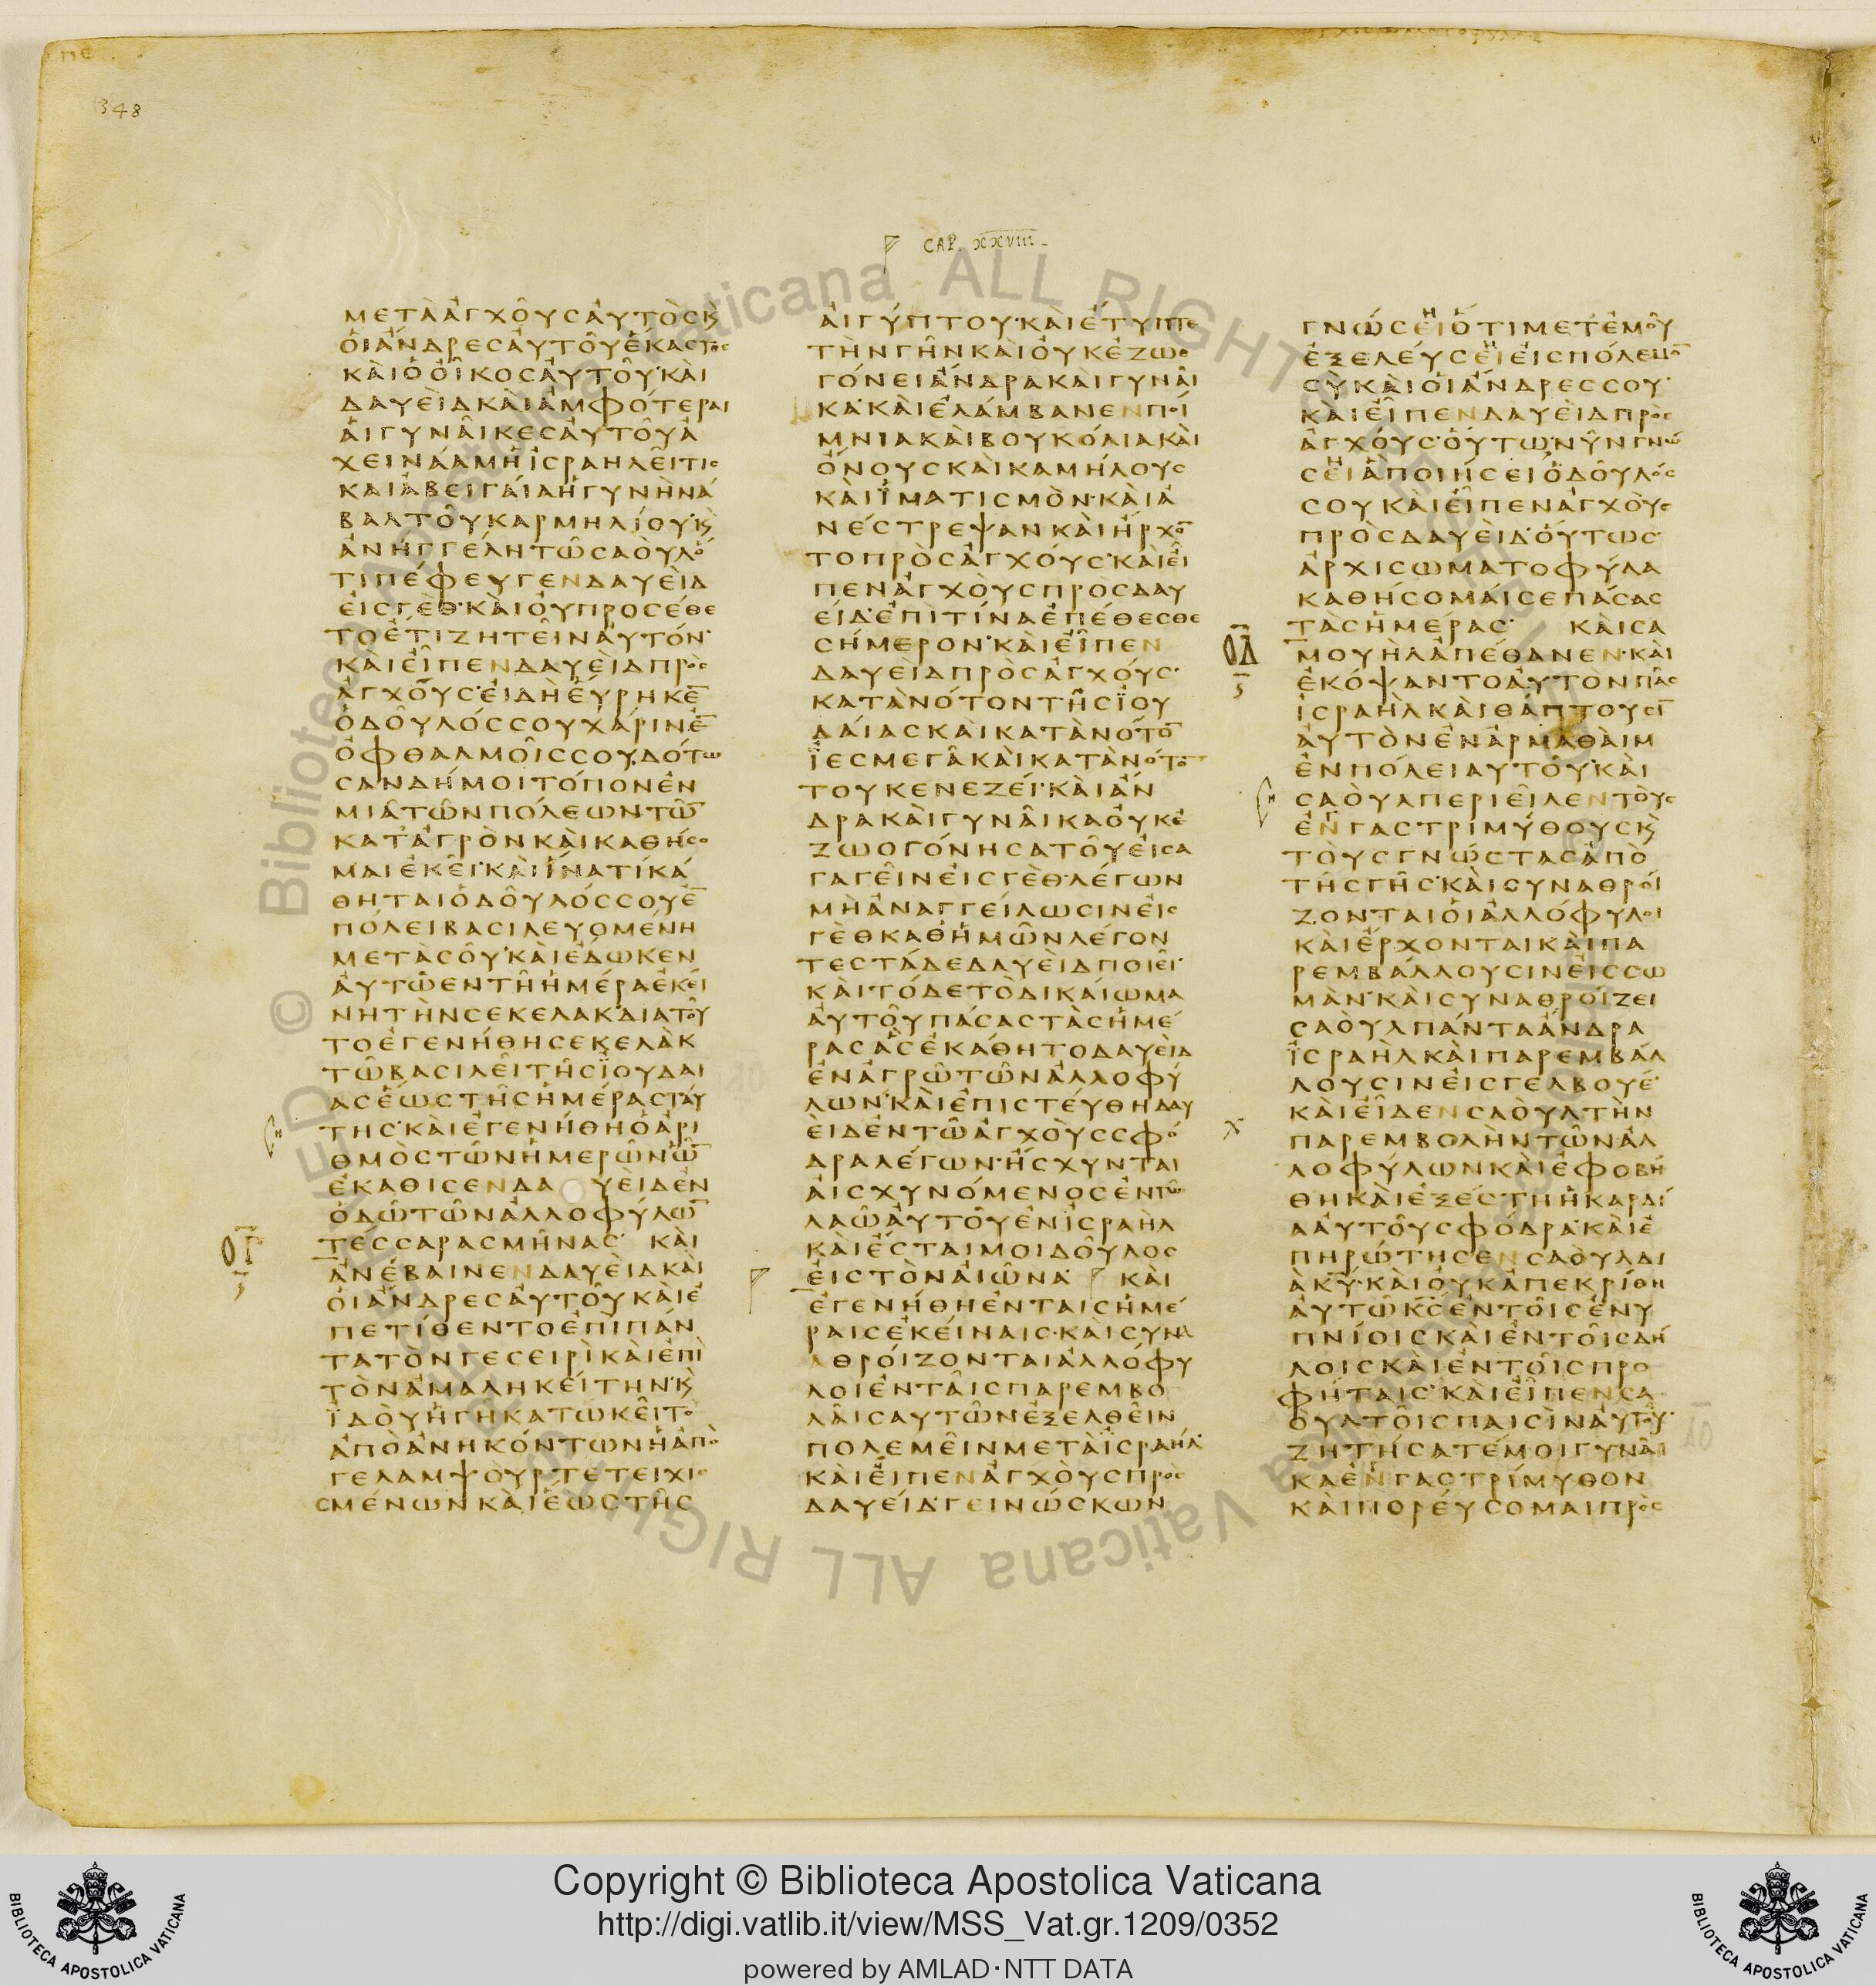 ΠΕ
348
CAP. XXVIII
ΜΕΤΑ ΑΓΧΟΥΣ ΑΥΤΟΣ Κ
ΟΙ ΑΝΔΡΕΣ ΑΥΤΟΥ ΕΚΑΣΤΟΣ
ΚΑΙ Ο ΟΙΚΟΣ ΑΥΤΟΥ ΚΑΙ
ΔΑΥΕΙΔ ΚΑΙ ΑΜΦΟΤΕΡΑΙ
ΑΙ ΓΥΝΑΙΚΕΣ ΑΥΤΟΥ Α
ΧΕΙΝΑΑΜ Η ΙΣΡΑΗΛΕΙΤΙΣ
ΚΑΙ ΑΒΕΙΓΑΙΑ Η ΓΥΝΗ ΝΑ
ΒΑΛ ΤΟΥ ΚΑΡΜΗΛΙΟΥ Κ
ΑΝΗΓΓΕΛΗ ΤΩ ΣΑΟΥΛ Ο
ΤΙ ΠΕΦΕΥΓΕΝ ΔΑΥΕΙΔ
ΕΙΣ ΓΕΘ ΚΑΙ ΟΥ ΠΡΟΣΕΘΕ
ΤΟ ΕΤΙ ΖΗΤΕΙΝ ΑΥΤΟΝ
ΚΑΙ ΕΙΠΕΝ ΔΑΥΕΙΔ ΠΡΟΣ
ΑΓΧΟΥΣ ΕΙ ΔΗ ΕΥΡΗΚΕ̅
Ο ΔΟΥΛΟΣ ΣΟΥ ΧΑΡΙΝ Ε̅
ΟΦΘΑΛΜΟΙΣ ΣΟΥ ΔΟΤΩ
ΣΑΝ ΔΗ ΜΟΙ ΤΟΠΟΝ ΕΝ
ΜΙΑ ΤΩΝ ΠΟΛΕΩΝ ΤΩ̅
ΚΑΤ ΑΓΡΟΝ ΚΑΙ ΚΑΘΗΣΟ
ΜΑΙ ΕΚΕΙ ΚΑΙ ΙΝΑ ΤΙ ΚΑ
ΘΗΤΑΙ Ο ΔΟΥΛΟΣ ΣΟΥ Ε̅
ΠΟΛΕΙ ΒΑΣΙΛΕΥΟΜΕΝΗ
ΜΕΤΑ ΣΟΥ ΚΑΙ ΕΔΩΚΕΝ
ΑΥΤΩ ΕΝ ΤΗ ΗΜΕΡΑ ΕΚΕΙ
ΝΗ ΤΗΝ ΣΕΚΕΛΑΚ ΔΙΑ ΤΟΥ
ΤΟ ΕΓΕΝΗΘΗ ΣΕΚΕΛΑΚ
ΤΩ ΒΑΣΙΛΕΙ ΤΗΣ ΙΟΥΔΑΙ
ΑΣ ΕΩΣ ΤΗΣ ΗΜΕΡΑΣ ΤΑΥ
ΤΗΣ ΚΑΙ ΕΓΕΝΗΘΗ Ο ΑΡΙ
ΘΜΟΣ ΤΩΝ ΗΜΕΡΩΝ Ω̅
ΕΚΑΘΙΣΕΝ ΔΑΥΕΙΔ ΕΝ
ΟΔΩ ΤΩΝ ΑΛΛΟΦΥΛΩ̅
ΤΕΣΣΑΡΑΣ ΜΗΝΑΣ ΚΑΙ
ΟΓ
ΑΝΕΒΑΙΝΕΝ ΔΑΥΕΙΔ ΚΑΙ
ΟΙ ΑΝΔΡΕΣ ΑΥΤΟΥ ΚΑΙ Ε
ΠΕΤΙΘΕΝΤΟ ΕΠΙ ΠΑΝ
ΤΑ ΤΟΝ ΓΕΣΕΙΡΙ ΚΑΙ ΕΠΙ
ΤΟΝ ΑΜΑΛΗΚΕΙΤΗΝ Κ
ΙΔΟΥ Η ΓΗ ΚΑΤΩΚΕΙΤΟ
ΑΠΟ ΑΝΗΚΟΝΤΩΝ Η ΑΠΟ
ΓΕΛΑΜΨΟΥΡ ΤΕΤΕΙΧΙ
ΣΜΕΝΩΝ ΚΑΙ ΕΩΣ ΤΗΣ
ΑΙΓΥΠΤΟΥ ΚΑΙ ΕΤΥΠΤΕ
ΤΗΝ ΓΗΝ ΚΑΙ ΟΥΚ ΕΖΩΟ
ΓΟΝΕΙ ΑΝΔΡΑ ΚΑΙ ΓΥΝΑΙ
ΚΑ ΚΑΙ ΕΛΑΜΒΑΝΕΝ ΠΟΙ
ΜΝΙΑ ΚΑΙ ΒΟΥΚΟΛΙΑ ΚΑΙ
ΟΝΟΥΣ ΚΑΙ ΚΑΜΗΛΟΥΣ
ΚΑΙ ΙΜΑΤΙΣΜΟΝ ΚΑΙ Α
ΝΕΣΤΡΕΨΑΝ ΚΑΙ ΗΡΧΟ̅
ΤΟ ΠΡΟΣ ΑΓΧΟΥΣ ΚΑΙ ΕΙ
ΠΕΝ ΑΓΧΟΥΣ ΠΡΟΣ ΔΑΥ
ΕΙΔ ΕΠΙ ΤΙΝΑ ΕΠΕΘΕΣΘΕ
ΣΗΜΕΡΟΝ ΚΑΙ ΕΙΠΕΝ
ΔΑΥΕΙΔ ΠΡΟΣ ΑΓΧΟΥΣ
ΚΑΤΑ ΝΟΤΟΝ ΤΗΣ ΙΟΥ
ΔΑΙΑΣ ΚΑΙ ΚΑΤΑ ΝΟΤΟ̅
ΙΕΣΜΕΓΑ ΚΑΙ ΚΑΤΑ ΝΟΤΟ̅
ΤΟΥ ΚΕΝΕΖΕΙ ΚΑΙ ΑΝ
ΔΡΑ ΚΑΙ ΓΥΝΑΙΚΑ ΟΥΚ Ε
ΖΩΟΓΟΝΗΣΑ ΤΟΥ ΕΙΣΑ
ΓΑΓΕΙΝ ΕΙΣ ΓΕΘ ΛΕΓΩΝ
ΜΗ ΑΝΑΓΓΕΙΛΩΣΙΝ ΕΙΣ
ΓΕΘ ΚΑΘ ΗΜΩΝ ΛΕΓΟΝ
ΤΕΣ ΤΑΔΕ ΔΑΥΕΙΔ ΠΟΙΕΙ
ΚΑΙ ΤΟΔΕ ΤΟ ΔΙΚΑΙΩΜΑ
ΑΥΤΟΥ ΠΑΣΑΣ ΤΑΣ ΗΜΕ
ΡΑΣ ΑΣ ΕΚΑΘΗΤΟ ΔΑΥΕΙΔ
ΕΝ ΑΓΡΩ ΤΩΝ ΑΛΛΟΦΥ
ΛΩΝ ΚΑΙ ΕΠΙΣΤΕΥΘΗ ΔΑΥ
ΕΙΔ ΕΝ ΤΩ ΑΓΧΟΥΣ ΣΦΟ
ΔΡΑ ΛΕΓΩΝ ΗΣΧΥΝΤΑΙ
ΑΙΣΧΥΝΟΜΕΝΟΣ ΕΝ ΤΩ
ΛΑΩ ΑΥΤΟΥ ΕΝ ΙΣΡΑΗΛ
ΚΑΙ ΕΣΤΑΙ ΜΟΙ ΔΟΥΛΟΣ
ΕΙΣ ΤΟΝ ΑΙΩΝΑ ΚΑΙ
ΕΓΕΝΗΘΗ ΕΝ ΤΑΙΣ ΗΜΕ
ΡΑΙΣ ΕΚΕΙΝΑΙΣ ΚΑΙ ΣΥΝΑ
ΑΘΡΟΙΖΟΝΤΑΙ ΑΛΛΟΦΥ
ΛΟΙ ΕΝ ΤΑΙΣ ΠΑΡΕΜΒΟ
ΛΑΙΣ ΑΥΤΩΝ ΕΞΕΛΘΕΙΝ
ΠΟΛΕΜΕΙΝ ΜΕΤΑ ΙΣΡΑΗΛ
ΚΑΙ ΕΙΠΕΝ ΑΓΧΟΥΣ ΠΡΟΣ
ΔΑΥΕΙΔ ΓΕΙΝΩΣΚΩΝ
ΓΝΩΣΕΙ ΟΤΙ ΜΕΤ ΕΜΟΥ
ΕΞΕΛΕΥΣΕΙ ΕΙΣ ΠΟΛΕΜΟ̅
ΣΥ ΚΑΙ ΟΙ ΑΝΔΡΕΣ ΣΟΥ
ΚΑΙ ΕΙΠΕΝ ΔΑΥΕΙΔ ΠΡΟΣ
ΑΓΧΟΥΣ ΟΥΤΩ ΝΥΝ ΓΝΩ
ΣΕΙ Α ΠΟΙΗΣΕΙ Ο ΔΟΥΛΟΣ
ΣΟΥ ΚΑΙ ΕΙΠΕΝ ΑΓΧΟΥΣ
ΠΡΟΣ ΔΑΥΕΙΔ ΟΥΤΩΣ
ΑΡΧΙΣΩΜΑΤΟΦΥΛΑ
ΚΑ ΘΗΣΟΜΑΙ ΣΕ ΠΑΣΑΣ
ΤΑΣ ΗΜΕΡΑΣ ΚΑΙ ΣΑ
ΟΔ
ΜΟΥΗΛ ΑΠΕΘΑΝΕΝ ΚΑΙ
ΕΚΟΨΑΝΤΟ ΑΥΤΟΝ ΠΑΣ
ΙΣΡΑΗΛ ΚΑΙ ΘΑΠΤΟΥΣΙ̅
ΑΥΤΟΝ ΕΝ ΑΡΜΑΘΑΙΜ
ΕΝ ΠΟΛΕΙ ΑΥΤΟΥ ΚΑΙ
ΣΑΟΥΛ ΠΕΡΙΕΙΛΕΝ ΤΟΥΣ
ΕΝΓΑΣΤΡΙΜΥΘΟΥΣ Κ
ΤΟΥΣ ΓΝΩΣΤΑΣ ΑΠΟ
ΤΗΣ ΓΗΣ ΚΑΙ ΣΥΝΑΘΡΟΙ
ΖΟΝΤΑΙ ΟΙ ΑΛΛΟΦΥΛΟΙ
ΚΑΙ ΕΡΧΟΝΤΑΙ ΚΑΙ ΠΑ
ΡΕΜΒΑΛΛΟΥΣΙΝ ΕΙΣ ΣΩ
ΜΑΝ ΚΑΙ ΣΥΝΑΘΡΟΙΖΕΙ
ΣΑΟΥΛ ΠΑΝΤΑ ΑΝΔΡΑ
ΙΣΡΑΗΛ ΚΑΙ ΠΑΡΕΜΒΑΛ
ΛΟΥΣΙΝ ΕΙΣ ΓΕΛΒΟΥΕ
ΚΑΙ ΕΙΔΕΝ ΣΑΟΥΛ ΤΗΝ
ΠΑΡΕΜΒΟΛΗΝ ΤΩΝ ΑΛ
ΛΟΦΥΛΩΝ ΚΑΙ ΕΦΟΒΗ
ΘΗ ΚΑΙ ΕΞΕΣΤΗ Η ΚΑΡΔΙ
Α ΑΥΤΟΥ ΣΦΟΔΡΑ ΚΑΙ Ε
ΠΗΡΩΤΗΣΕΝ ΣΑΟΥΛ ΔΙ
Α ΚΥ ΚΑΙ ΟΥΚ ΑΠΕΚΡΙΘΗ
ΑΥΤΩ ΚΣ ΕΝ ΤΟΙΣ ΕΝΥ
ΠΝΙΟΙΣ ΚΑΙ ΕΝ ΤΟΙΣ ΔΗ
ΛΟΙΣ ΚΑΙ ΕΝ ΤΟΙΣ ΠΡΟ
ΦΗΤΑΙΣ ΚΑΙ ΕΙΠΕΝ ΣΑ
ΟΥΛ ΤΟΙΣ ΠΑΙΣΙΝ ΑΥΤΟΥ
ΖΗΤΗΣΑΤΕ ΜΟΙ ΓΥΝΑΙ
ΚΑ ΕΝΓΑΣΤΡΙΜΥΘΟΝ
ΚΑΙ ΠΟΡΕΥΣΟΜΑΙ ΠΡΟΣ
© Biblioteca Apostolica Vaticana ALL RIGHTS RESERVED
Copyright © Biblioteca Apostolica Vaticana
http://digi.vatlib.it/view/MSS_Vat.gr.1209/0352
powered by AMLAD·NTT DATA
BIBLIOTECA APOSTOLICA VATICANA
BIBLIOTECA APOSTOLICA VATICANA